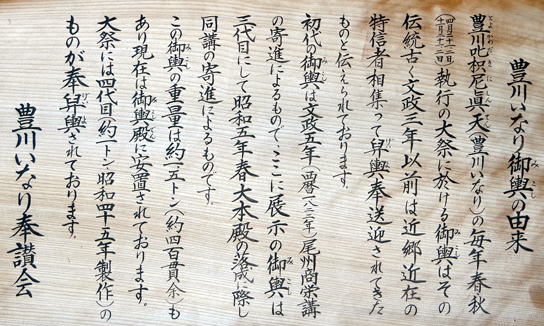 豊川いなり御輿の由来
豊川吒枳尼眞天(豊川いなり)の毎年春秋
執行の大祭に於ける御輿はその
伝統古く文政三年以前は近郷近在の
特信者相集って舁輿奉送迎されてきた
ものと伝えられております。
初代の御輿は文政五年(西暦一八二二年)尾州商栄講
の寄進によるもので、ここに展示の御輿は
三代目にして昭和五年春大本殿の落成に際し
同講の寄進によるものです。
この御輿の重量は約一五トン(約四百貫余)も
あり現在は御輿殿に安置されております。
大祭には四代目(約一トン昭和四十五年製作)の
ものが奉舁輿されております。
豊川いなり奉讃会